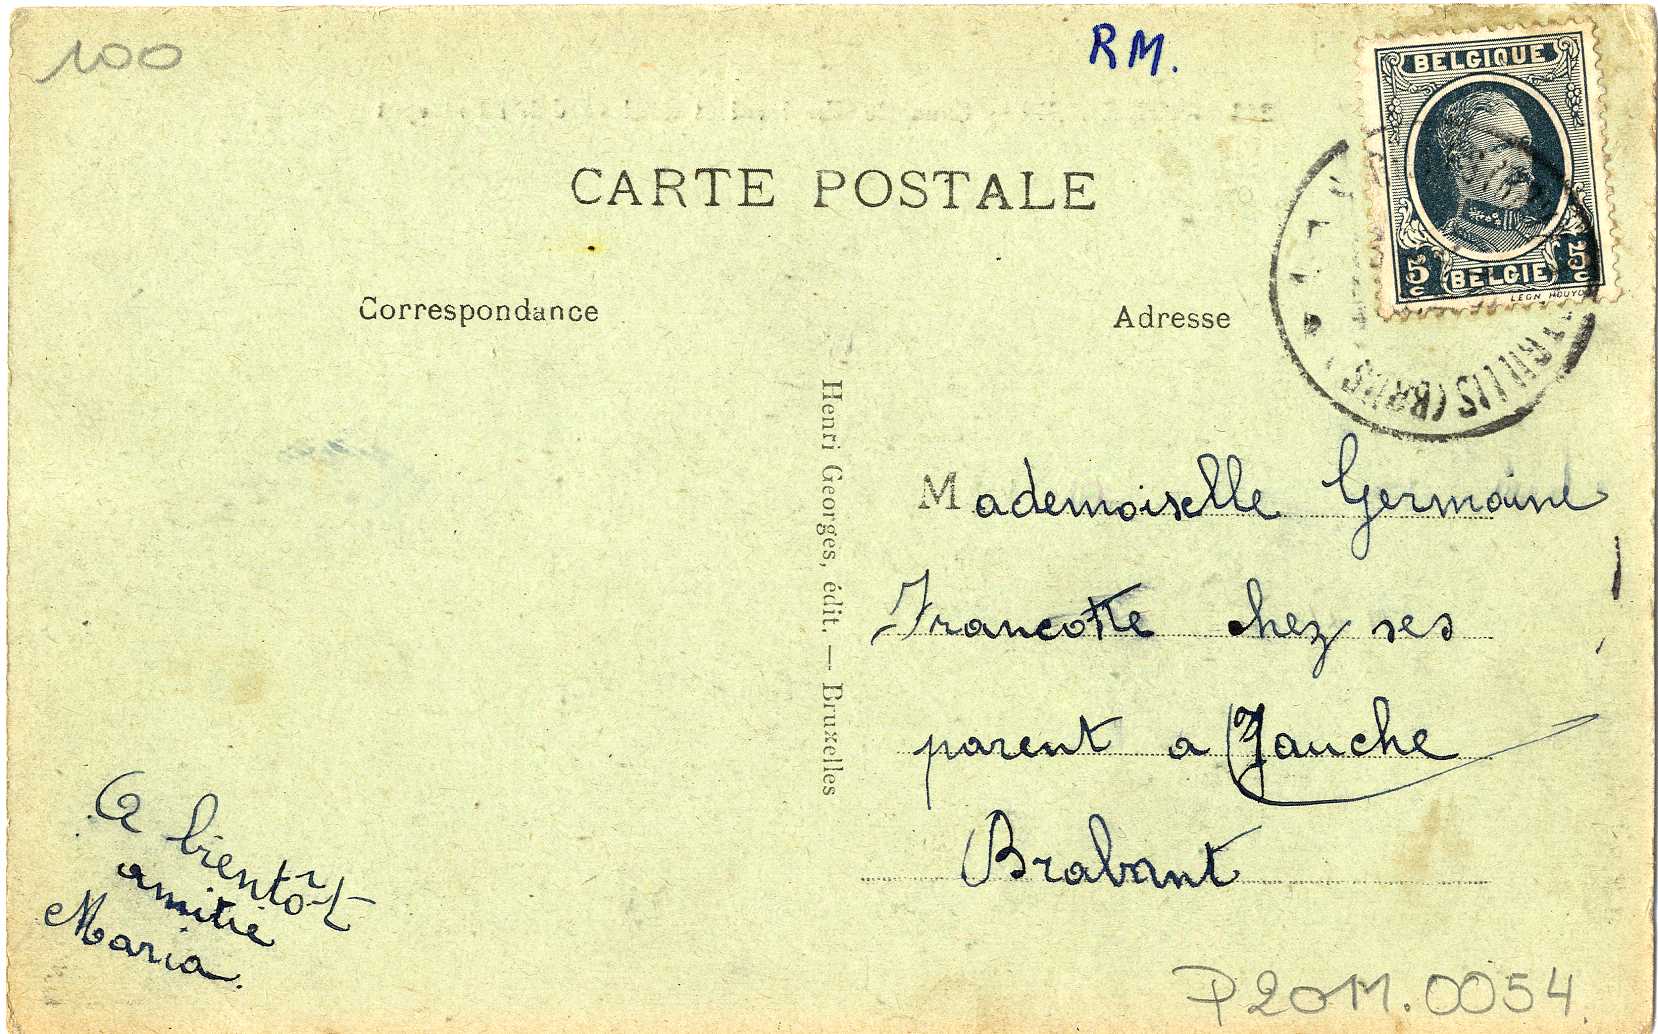 100
RM.
BELGIQUE
25c 25c
BELGIE
CARTE POSTALE
Correspondance
Adresse
Henri Georges, édit. — Bruxelles
Mademoiselle Germaine
Francotte chez ses
parent a Jauche
Brabant
A bientôt
amitié
Maria.
P2011.0054